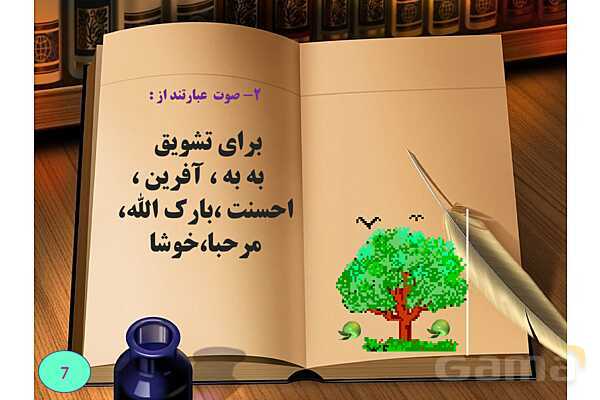 ۲- صوت عبارتند از :
برای تشویق
به به ، آفرین ،
احسنت ،بارک الله،
مرحبا،خوشا
7
Gama